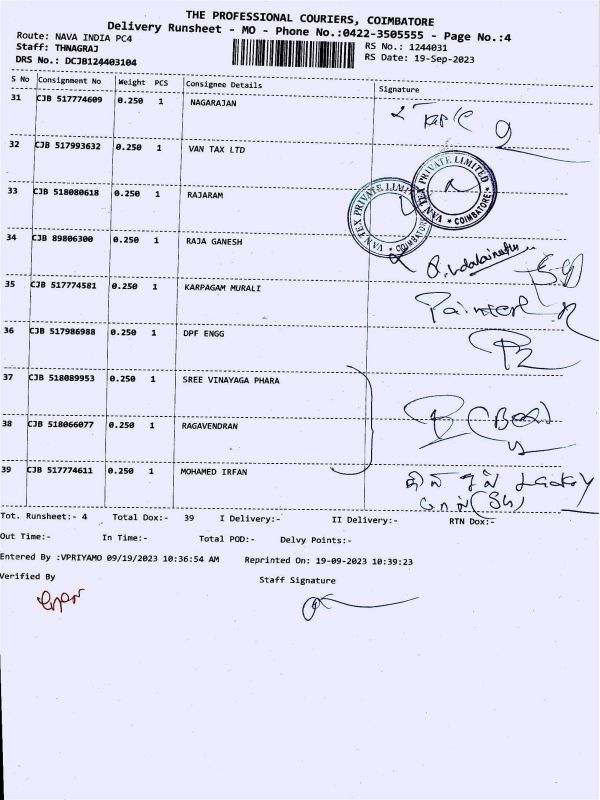 THE PROFESSIONAL COURIERS, COIMBATORE
Delivery Runsheet - MO - Phone No.:0422-3505555 - Page No.:4
Route: NAVA INDIA PC4 RS No.: 1244031
Staff: THNAGRAJ RS Date: 19-Sep-2023
DRS No.: DCJB124403104
S No Consignment No Weight PCS Consignee Details Signature
31 CJB 517774609 0.250 1 NAGARAJAN
32 CJB 517993632 0.250 1 VAN TAX LTD
VAN TEX PRIVATE LIMITED * COIMBATORE *
33 CJB 518080618 0.250 1 RAJARAM
VAN TEX PRIVATE LIMITED * COIMBATORE
34 CJB 89806300 0.250 1 RAJA GANESH
35 CJB 517774581 0.250 1 KARPAGAM MURALI
36 CJB 517986988 0.250 1 DPF ENGG
37 CJB 518089953 0.250 1 SREE VINAYAGA PHARA
38 CJB 518066077 0.250 1 RAGAVENDRAN
39 CJB 517774611 0.250 1 MOHAMED IRFAN
Tot. Runsheet:- 4 Total Dox:- 39 I Delivery:- II Delivery:- RTN Dox:-
Out Time:- In Time:- Total POD:- Delvy Points:-
Entered By :VPRIYAMO 09/19/2023 10:36:54 AM Reprinted On: 19-09-2023 10:39:23
Verified By Staff Signature